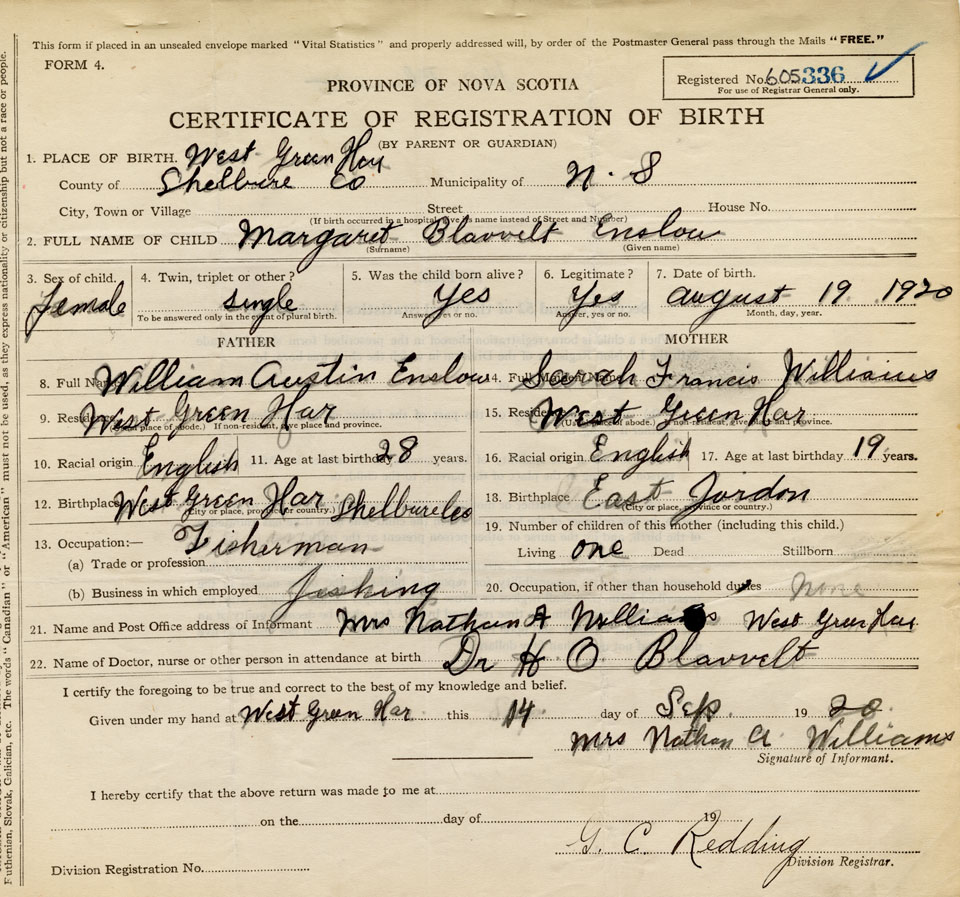 This form if placed in an unsealed envelope marked "Vital Statistics" and properly addressed will, by order of the Postmaster General pass through the Mails "FREE."
FORM 4.
Registered No. 605336
For use of Registrar General only.
PROVINCE OF NOVA SCOTIA
CERTIFICATE OF REGISTRATION OF BIRTH
(BY PARENT OR GUARDIAN)
1. PLACE OF BIRTH. West Green Har
County of Shelbure Co Municipality of N. S
City, Town or Village Street House No.
(If birth occurred in a hospital, give its name instead of Street and Number)
2. FULL NAME OF CHILD Margaret Blavvelt Enslow
(Surname) (Given name)
3. Sex of child. 4. Twin, triplet or other? 5. Was the child born alive? 6. Legitimate? 7. Date of birth.
female single Yes Yes august 19 1920
To be answered only in the event of plural birth. Answer, yes or no. Answer, yes or no. Month, day, year.
FATHER MOTHER
8. Full Name William Austin Enslow 14. Full Maiden Name Sarah Francis Williams
9. Residence West Green Har 15. Residence West Green Har
(Usual place of abode.) If non-resident, give place and province. (Usual place of abode.) If non-resident, give place and province.
10. Racial origin English 11. Age at last birthday 28 years. 16. Racial origin English 17. Age at last birthday 19 years.
12. Birthplace West Green Har Shelbure Co 18. Birthplace East Jordon
(City or place, province or country.) (City or place, province or country.)
13. Occupation:— Fisherman 19. Number of children of this mother (including this child.)
(a) Trade or profession Living one Dead Stillborn
(b) Business in which employed fishing 20. Occupation, if other than household duties none
21. Name and Post Office address of Informant Mrs Nathan A Williams West Green Har
22. Name of Doctor, nurse or other person in attendance at birth Dr H O Blavvelt
I certify the foregoing to be true and correct to the best of my knowledge and belief.
Given under my hand at West Green Har this 14 day of Sep. 19 20
Mrs Nathan A Williams
Signature of Informant.
I hereby certify that the above return was made to me at
on the day of 19
G. C. Redding
Division Registrar.
Division Registration No.
Ruthenian, Slovak, Galician, etc. The words "Canadian" or "American" must not be used, as they express nationality or citizenship but not a race or people.